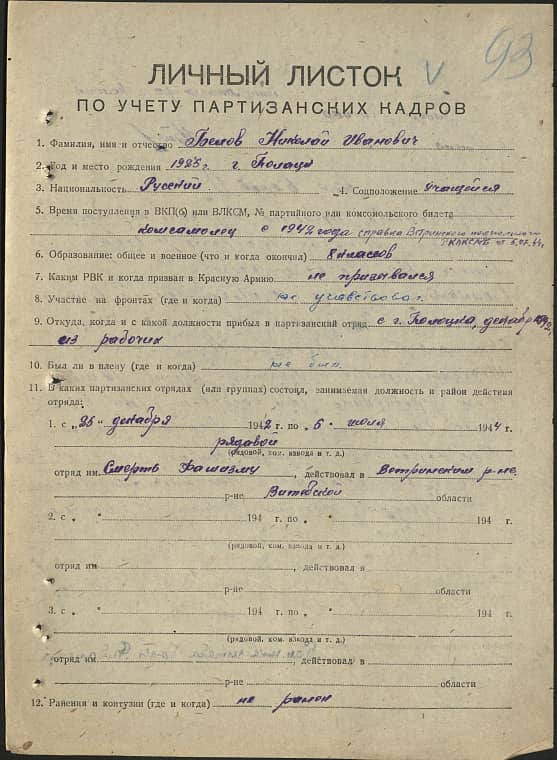 V 93
ЛИЧНЫЙ ЛИСТОК
ПО УЧЕТУ ПАРТИЗАНСКИХ КАДРОВ
1. Фамилия, имя и отчество Белов Николай Иванович
2. Год и место рождения г. Полацк
3. Национальность Русский 4. Соцположение Учащейся
5. Время поступления в ВКП(б) или ВЛКСМ, № партийного или комсомольского билета
комсамолец с 1942 года справка Ветринского подпольного
РКЛКСМБ от 5.07.44
6. Образование: общее и военное (что и когда окончил) 8 классов
7. Каким РВК и когда призван в Красную Армию не призывался
8. Участие на фронтах (где и когда) не учавствовал
9. Откуда, когда и с какой должности прибыл в партизанский отряд с г. Полоцка, декабр 1942,
из рабочих
10. Был ли в плену (где и когда) не был
11. В каких партизанских отрядах (или группах) состоял, занимаемая должность и район действия
отряда:
1. с „25“ декабря 1942 г. по „5“ июля 1944 г.
рядовой
(рядовой, ком. взвода и т. д.)
отряд им. Смерть Фашизму, действовал в Ветринском р-не.
р-не Витебской области
2. с „ “ 194 г. по „ “ 194 г.
(рядовой, ком. взвода и т. д.)
отряд им , действовал в
р-не области
3. с „ “ 194 г. по „ “ 194 г.
(рядовой, ком. взвода и т. д.)
отряд им. , действовал в
р-не области
12. Ранения и контузии (где и когда) не ранен